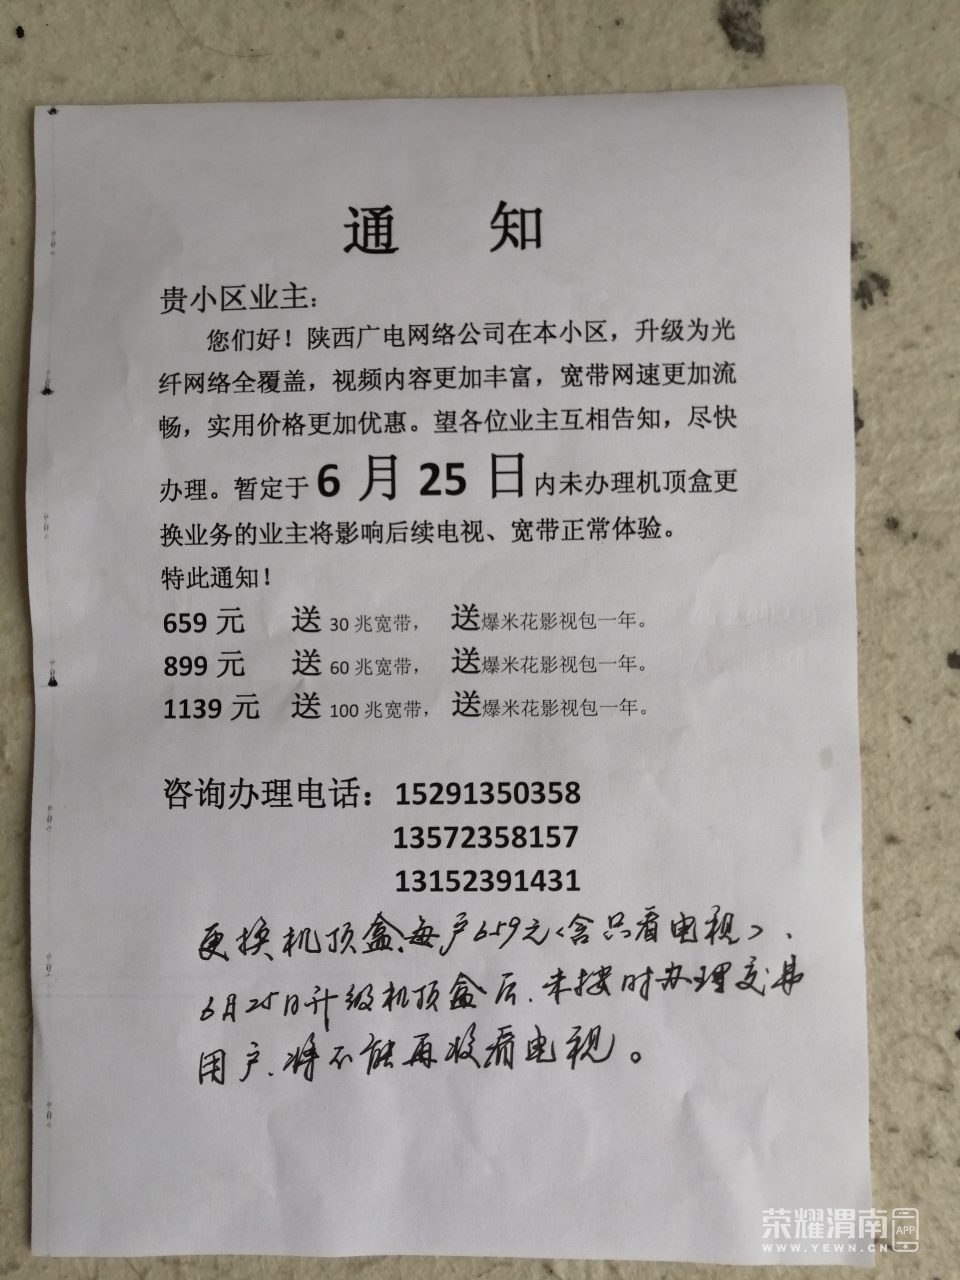 通 知
贵小区业主：
您们好！陕西广电网络公司在本小区，升级为光
纤网络全覆盖，视频内容更加丰富，宽带网速更加流
畅，实用价格更加优惠。望各位业主互相告知，尽快
办理。暂定于 6 月 25 日内未办理机顶盒更
换业务的业主将影响后续电视、宽带正常体验。
特此通知！
659 元 送 30 兆宽带， 送爆米花影视包一年。
899 元 送 60 兆宽带， 送爆米花影视包一年。
1139 元 送 100 兆宽带， 送爆米花影视包一年。
咨询办理电话：15291350358
13572358157
13152391431
更换机顶盒、每户659元<含只看电视>、
6月25日升级机顶盒后、未按时办理交易
用户、将不能再收看电视。
荣耀渭南 APP
WWW.YEWN.CN